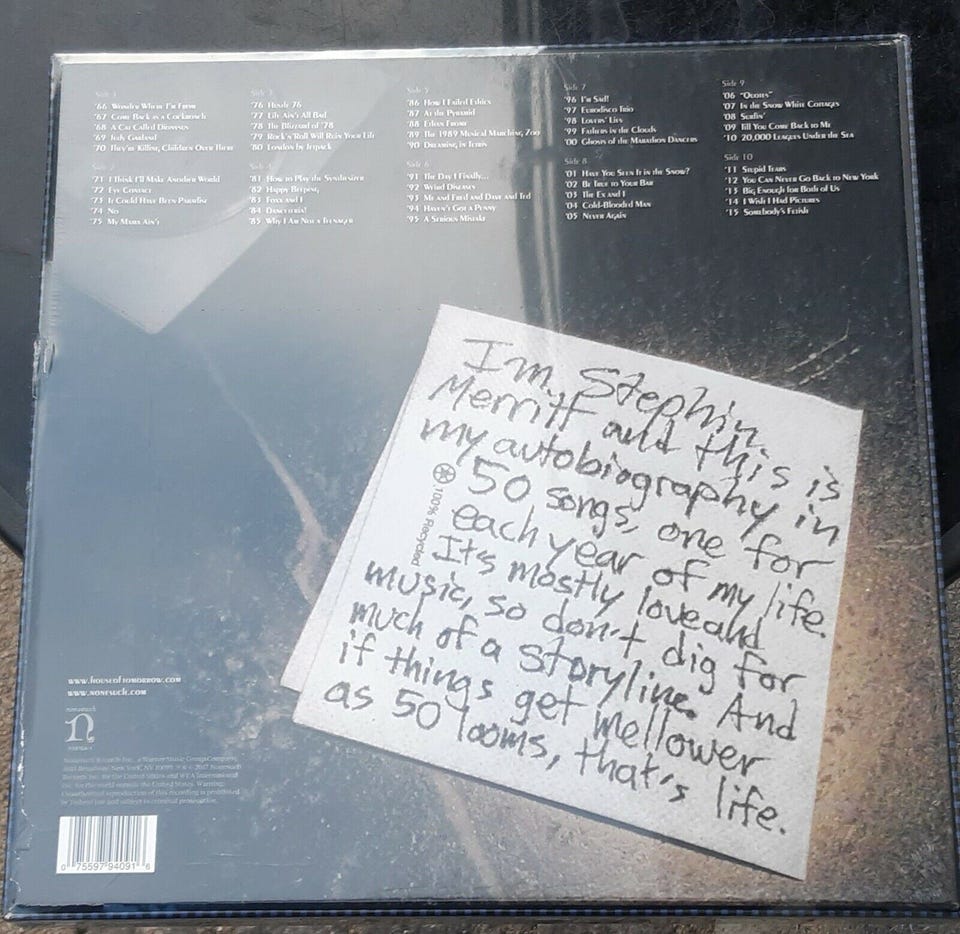 Side 1
'66 Wonder Where I'm From
'67 Come Back as a Cockroach
'68 A Cat Called Dionysus
'69 Judy Garland
'70 They're Killing Children Over There
Side 2
'71 I Think I'll Make Another World
'72 Eye Contact
'73 It Could Have Been Paradise
'74 No
'75 My Mama Ain't
Side 3
'76 Hustle 76
'77 Life Ain't All Bad
'78 The Blizzard of '78
'79 Rock'n'Roll Will Ruin Your Life
'80 London by Jetpack
Side 4
'81 How to Play the Synthesizer
'82 Happy Beeping
'83 Foxx and I
'84 Danceteria!
'85 Why I Am Not a Teenager
Side 5
'86 How I Failed Ethics
'87 At the Pyramid
'88 Ethan Frome
'89 The 1989 Musical Marching Zoo
'90 Dreaming in Tetris
Side 6
'91 The Day I Finally...
'92 Weird Diseases
'93 Me and Fred and Dave and Ted
'94 Haven't Got a Penny
'95 A Serious Mistake
Side 7
'96 I'm Sad!
'97 Eurodisco Trio
'98 Lovers' Lies
'99 Fathers in the Clouds
'00 Ghosts of the Marathon Dancers
Side 8
'01 Have You Seen It in the Snow?
'02 Be True to Your Bar
'03 The Ex and I
'04 Cold-Blooded Man
'05 Never Again
Side 9
'06 "Quotes"
'07 In the Snow White Cottages
'08 Surfin'
'09 Till You Come Back to Me
'10 20,000 Leagues Under the Sea
Side 10
'11 Stupid Tears
'12 You Can Never Go Back to New York
'13 Big Enough for Both of Us
'14 I Wish I Had Pictures
'15 Somebody's Fetish
I'm Stephin
Merritt and this is
my autobiography in
50 songs, one for
each year of my life.
It's mostly love and
music, so don't dig for
much of a storyline. And
if things get mellower
as 50 looms, that's life.
100% Recycled
www.houseoftomorrow.com
www.nonesuch.com
nonesuch
Nonesuch Records Inc., a Warner Music Group Company,
Broadway, New York, NY 2017 Nonesuch
Records Inc. for the United States and WEA International
Inc. for the world outside the United States. Warning:
Unauthorized reproduction of this recording is prohibited
by Federal law and subject to criminal prosecution.
0 75597 94091 6